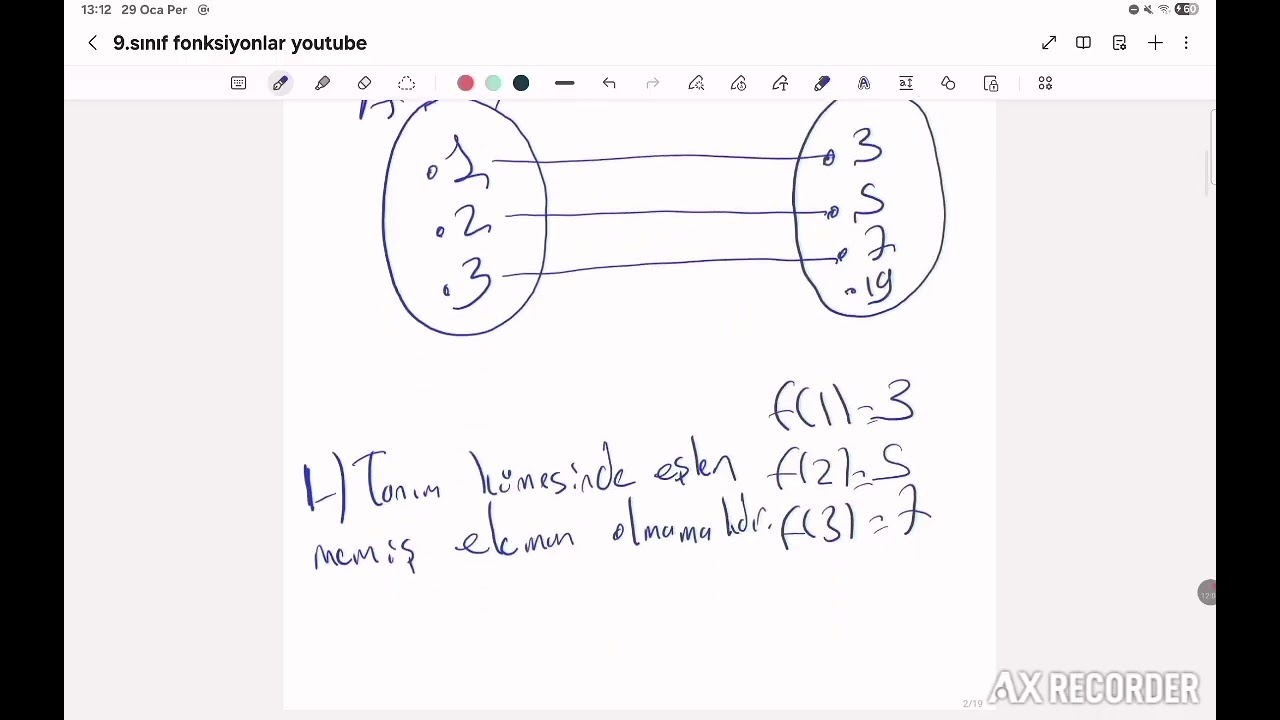 13:12 29 Oca Per
60
9.sınıf fonksiyonlar youtube
.1 3
.2 5
.3 7
.19
f(1)=3
1) Tanım kümesinde eşlen f(2)=5
memiş eleman olmamalıdır. f(3)=7
2/19
AX RECORDER